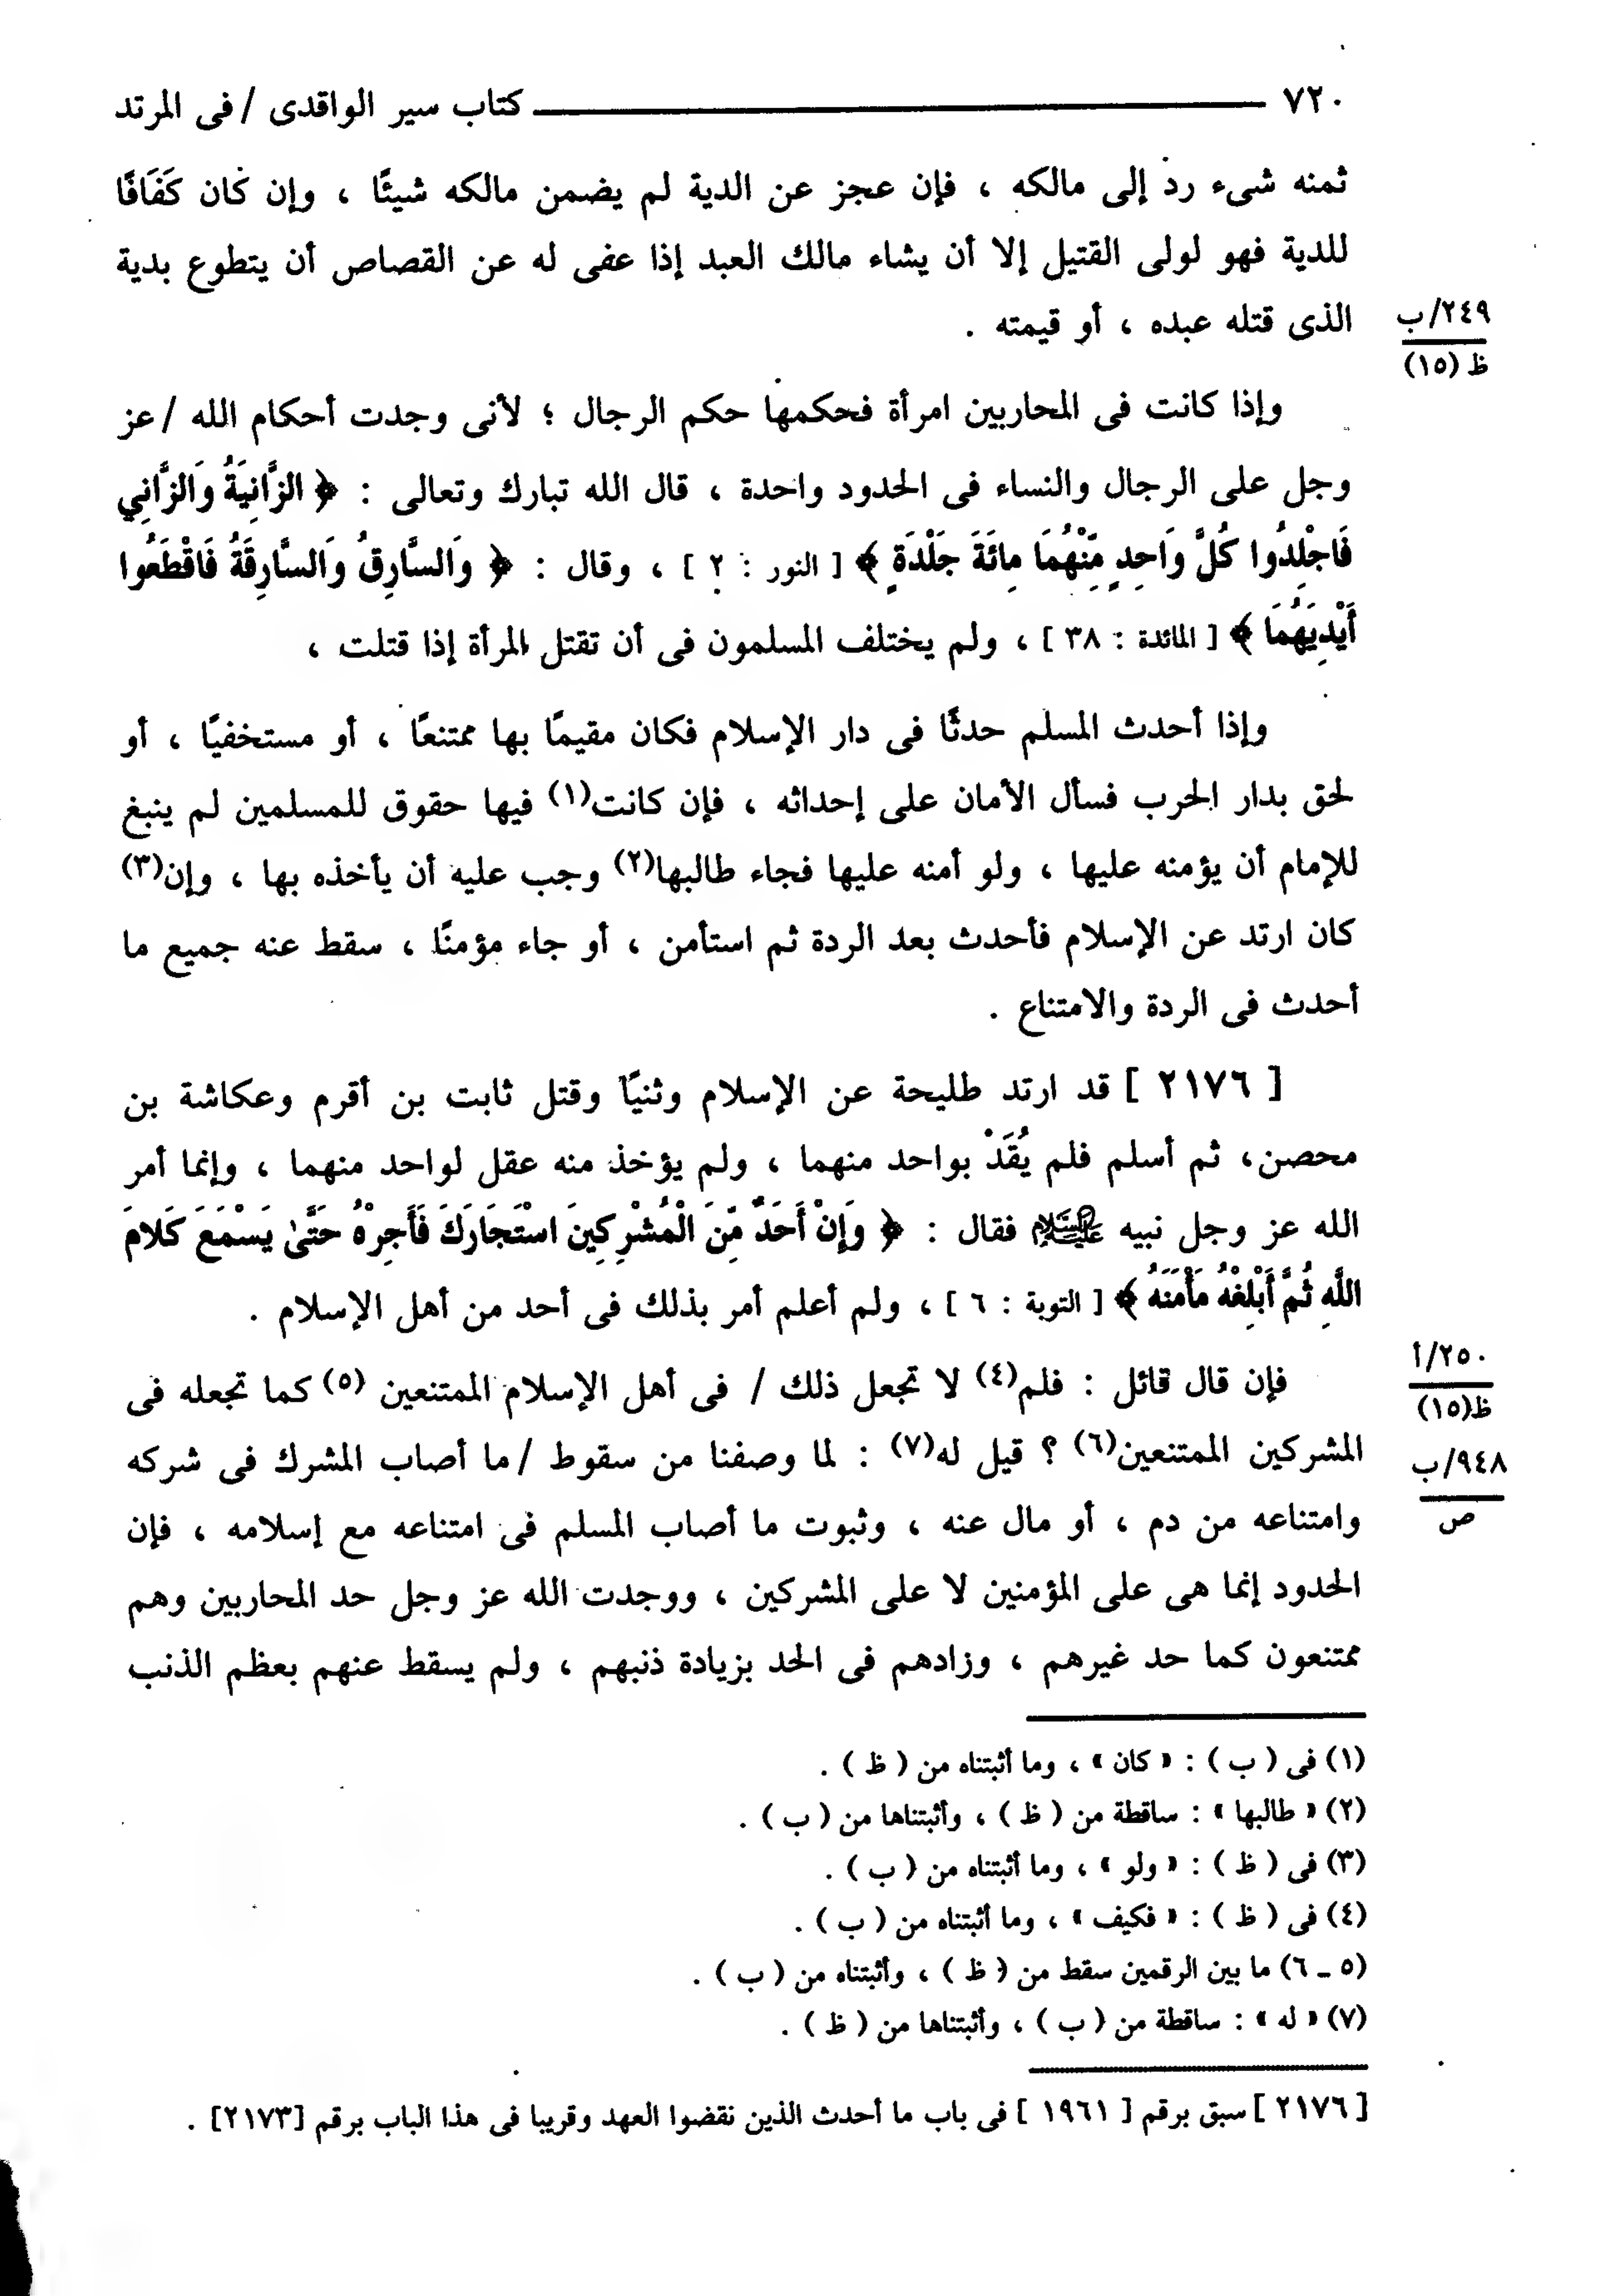 ٧٢٠ ——— كتاب سير الواقدى / فى المرتد
ثمنه شىء رد إلى مالكه ، فإن عجز عن الدية لم يضمن مالكه شيئًا ، وإن كان كَفَافًا
للدية فهو لولى القتيل إلا أن يشاء مالك العبد إذا عفى له عن القصاص أن يتطوع بدية
الذى قتله عبده ، أو قيمته .
٢٤٩/ب
ظ (١٥)
وإذا كانت فى المحاربين امرأة فحكمها حكم الرجال ؛ لأنى وجدت أحكام الله / عز
وجل على الرجال والنساء فى الحدود واحدة ، قال الله تبارك وتعالى : ﴿ الزَّانِيَةُ وَالزَّانِي
فَاجْلِدُوا كُلَّ وَاحِدٍ مِّنْهُمَا مِائَةَ جَلْدَةٍ ﴾ [ النور : ٢ ] ، وقال : ﴿ وَالسَّارِقُ وَالسَّارِقَةُ فَاقْطَعُوا
أَيْدِيَهُمَا ﴾ [ المائدة : ٣٨ ] ، ولم يختلف المسلمون فى أن تقتل المرأة إذا قتلت ،
وإذا أحدث المسلم حدثًا فى دار الإسلام فكان مقيمًا بها ممتنعًا ، أو مستخفيًا ، أو
لحق بدار الحرب فسأل الأمان على إحداثه ، فإن كانت(١) فيها حقوق للمسلمين لم ينبغ
للإمام أن يؤمنه عليها ، ولو أمنه عليها فجاء طالبها(٢) وجب عليه أن يأخذه بها ، وإن(٣)
كان ارتد عن الإسلام فأحدث بعد الردة ثم استأمن ، أو جاء مؤمنًا ، سقط عنه جميع ما
أحدث فى الردة والامتناع .
[ ٢١٧٦ ] قد ارتد طليحة عن الإسلام وثنيًا وقتل ثابت بن أقرم وعكاشة بن
محصن، ثم أسلم فلم يُقَدْ بواحد منهما ، ولم يؤخذ منه عقل لواحد منهما ، وإنما أمر
الله عز وجل نبيه ﷺ فقال : ﴿ وَإِنْ أَحَدٌ مِّنَ الْمُشْرِكِينَ اسْتَجَارَكَ فَأَجِرْهُ حَتَّىٰ يَسْمَعَ كَلامَ
اللَّهِ ثُمَّ أَبْلِغْهُ مَأْمَنَهُ ﴾ [ التوبة : ٦ ] ، ولم أعلم أمر بذلك فى أحد من أهل الإسلام .
فإن قال قائل : فلم(٤) لا تجعل ذلك / فى أهل الإسلام الممتنعين (٥) كما تجعله فى
٢٥٠/أ
ظ(١٥)
المشركين الممتنعين(٦) ؟ قيل له(٧) : لما وصفنا من سقوط / ما أصاب المشرك فى شركه
٩٤٨/ب
ص
وامتناعه من دم ، أو مال عنه ، وثبوت ما أصاب المسلم فى امتناعه مع إسلامه ، فإن
الحدود إنما هى على المؤمنين لا على المشركين ، ووجدت الله عز وجل حد المحاربين وهم
ممتنعون كما حد غيرهم ، وزادهم فى الحد بزيادة ذنبهم ، ولم يسقط عنهم بعظم الذنب
(١) فى ( ب ) : « كان » ، وما أثبتناه من ( ظ ) .
(٢) « طالبها » : ساقطة من ( ظ ) ، وأثبتناها من ( ب ) .
(٣) فى ( ظ ) : « ولو » ، وما أثبتناه من ( ب ) .
(٤) فى ( ظ ) : « فكيف » ، وما أثبتناه من ( ب ) .
(٥ ـ ٦) ما بين الرقمين سقط من ( ظ ) ، وأثبتناه من ( ب ) .
(٧) « له » : ساقطة من ( ب ) ، وأثبتناها من ( ظ ) .
[ ٢١٧٦ ] سبق برقم [ ١٩٦١ ] فى باب ما أحدث الذين نقضوا العهد وقريبا فى هذا الباب برقم [٢١٧٣] .